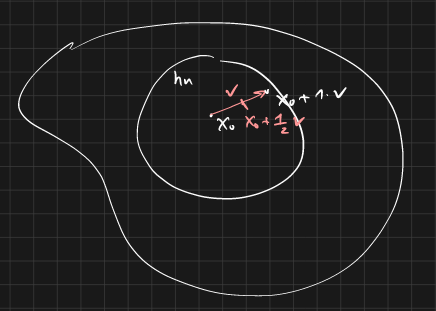 hn
v
x₀ + 1·v
x₀
x₀ + 1/2 v